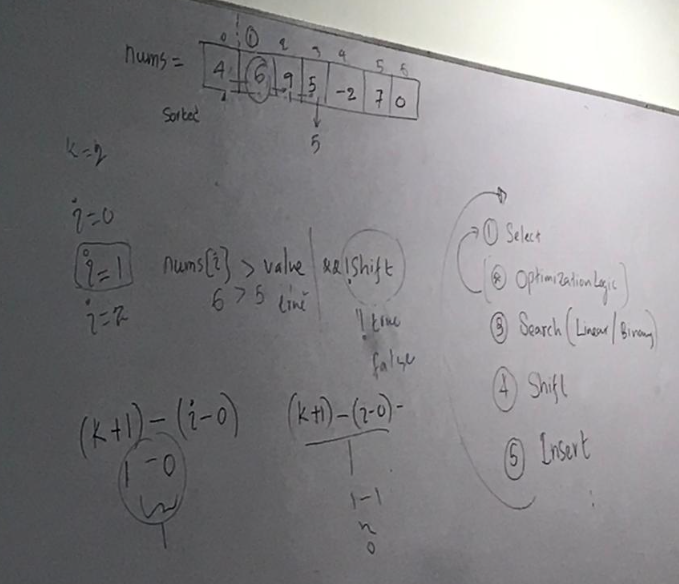 0 ① 2 3 4 5 6
nums = 4 6 9 5 -2 7 0
Sorted
5
k=2
i=0
i=1
i=2
nums[i] > value && !Shift
6 > 5
!true
false
(k+1)-(i-0)
1-0
1
(k+1)-(i-0)-
1
1-1
0
① Select
Optimization Logic)
③ Search (Linear/Binary)
④ Shift
⑤ Insert